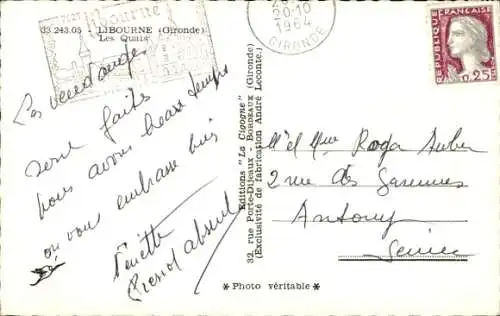 Libourne
33.243.05 - LIBOURNE (Gironde)
Les Quais
20-10
1964
GIRONDE
REPUBLIQUE FRANÇAISE
0,25
Les vendanges
sont faites
nous avons beau temps
on vous embrasse bien
Pierrot absent
Editions "La Cigogne"
32, rue Porte-Dijeaux - BORDEAUX (Gironde)
(Exclusivité de fabrication André Leconte.)
M et Mme Roger
2 rue des Garennes
Antony
Seine
* Photo véritable *